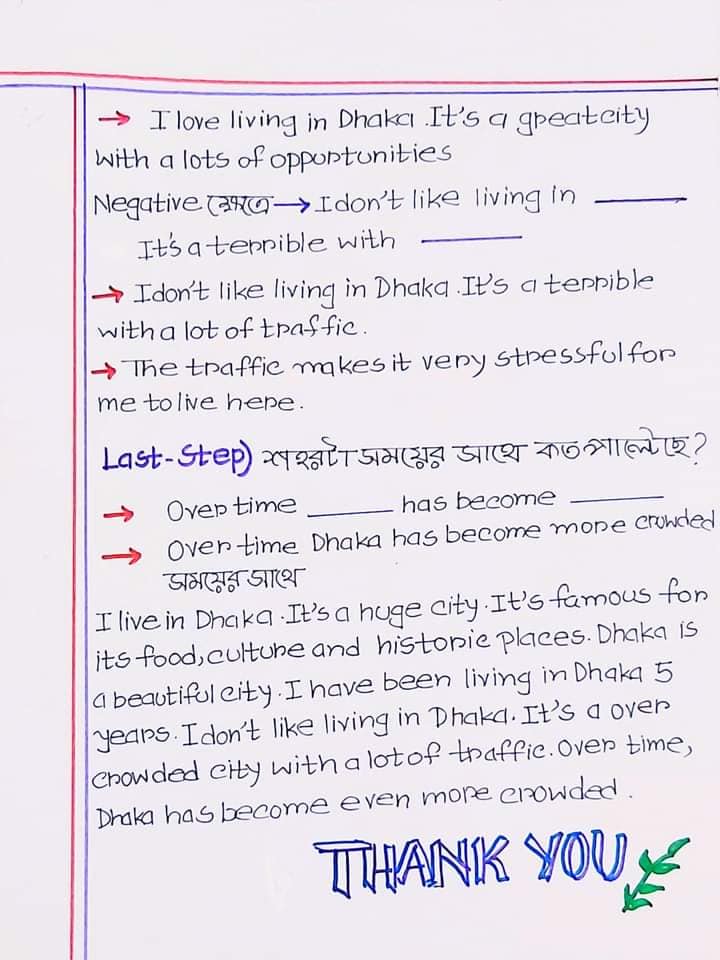 → I love living in Dhaka. It's a great city
with a lots of opportunities
Negative ক্ষেত্রে → I don't like living in ______
It's a terrible with ______
→ I don't like living in Dhaka. It's a terrible
with a lot of traffic.
→ The traffic makes it very stressful for
me to live here.
Last-Step) শহরটা সময়ের সাথে কত পাল্টেছে?
→ Over time ______ has become ______
→ Over time Dhaka has become more crowded
সময়ের সাথে
I live in Dhaka. It's a huge city. It's famous for
its food, culture and historic places. Dhaka is
a beautiful city. I have been living in Dhaka 5
years. I don't like living in Dhaka. It's a over
crowded city with a lot of traffic. Over time,
Dhaka has become even more crowded.
THANK YOU